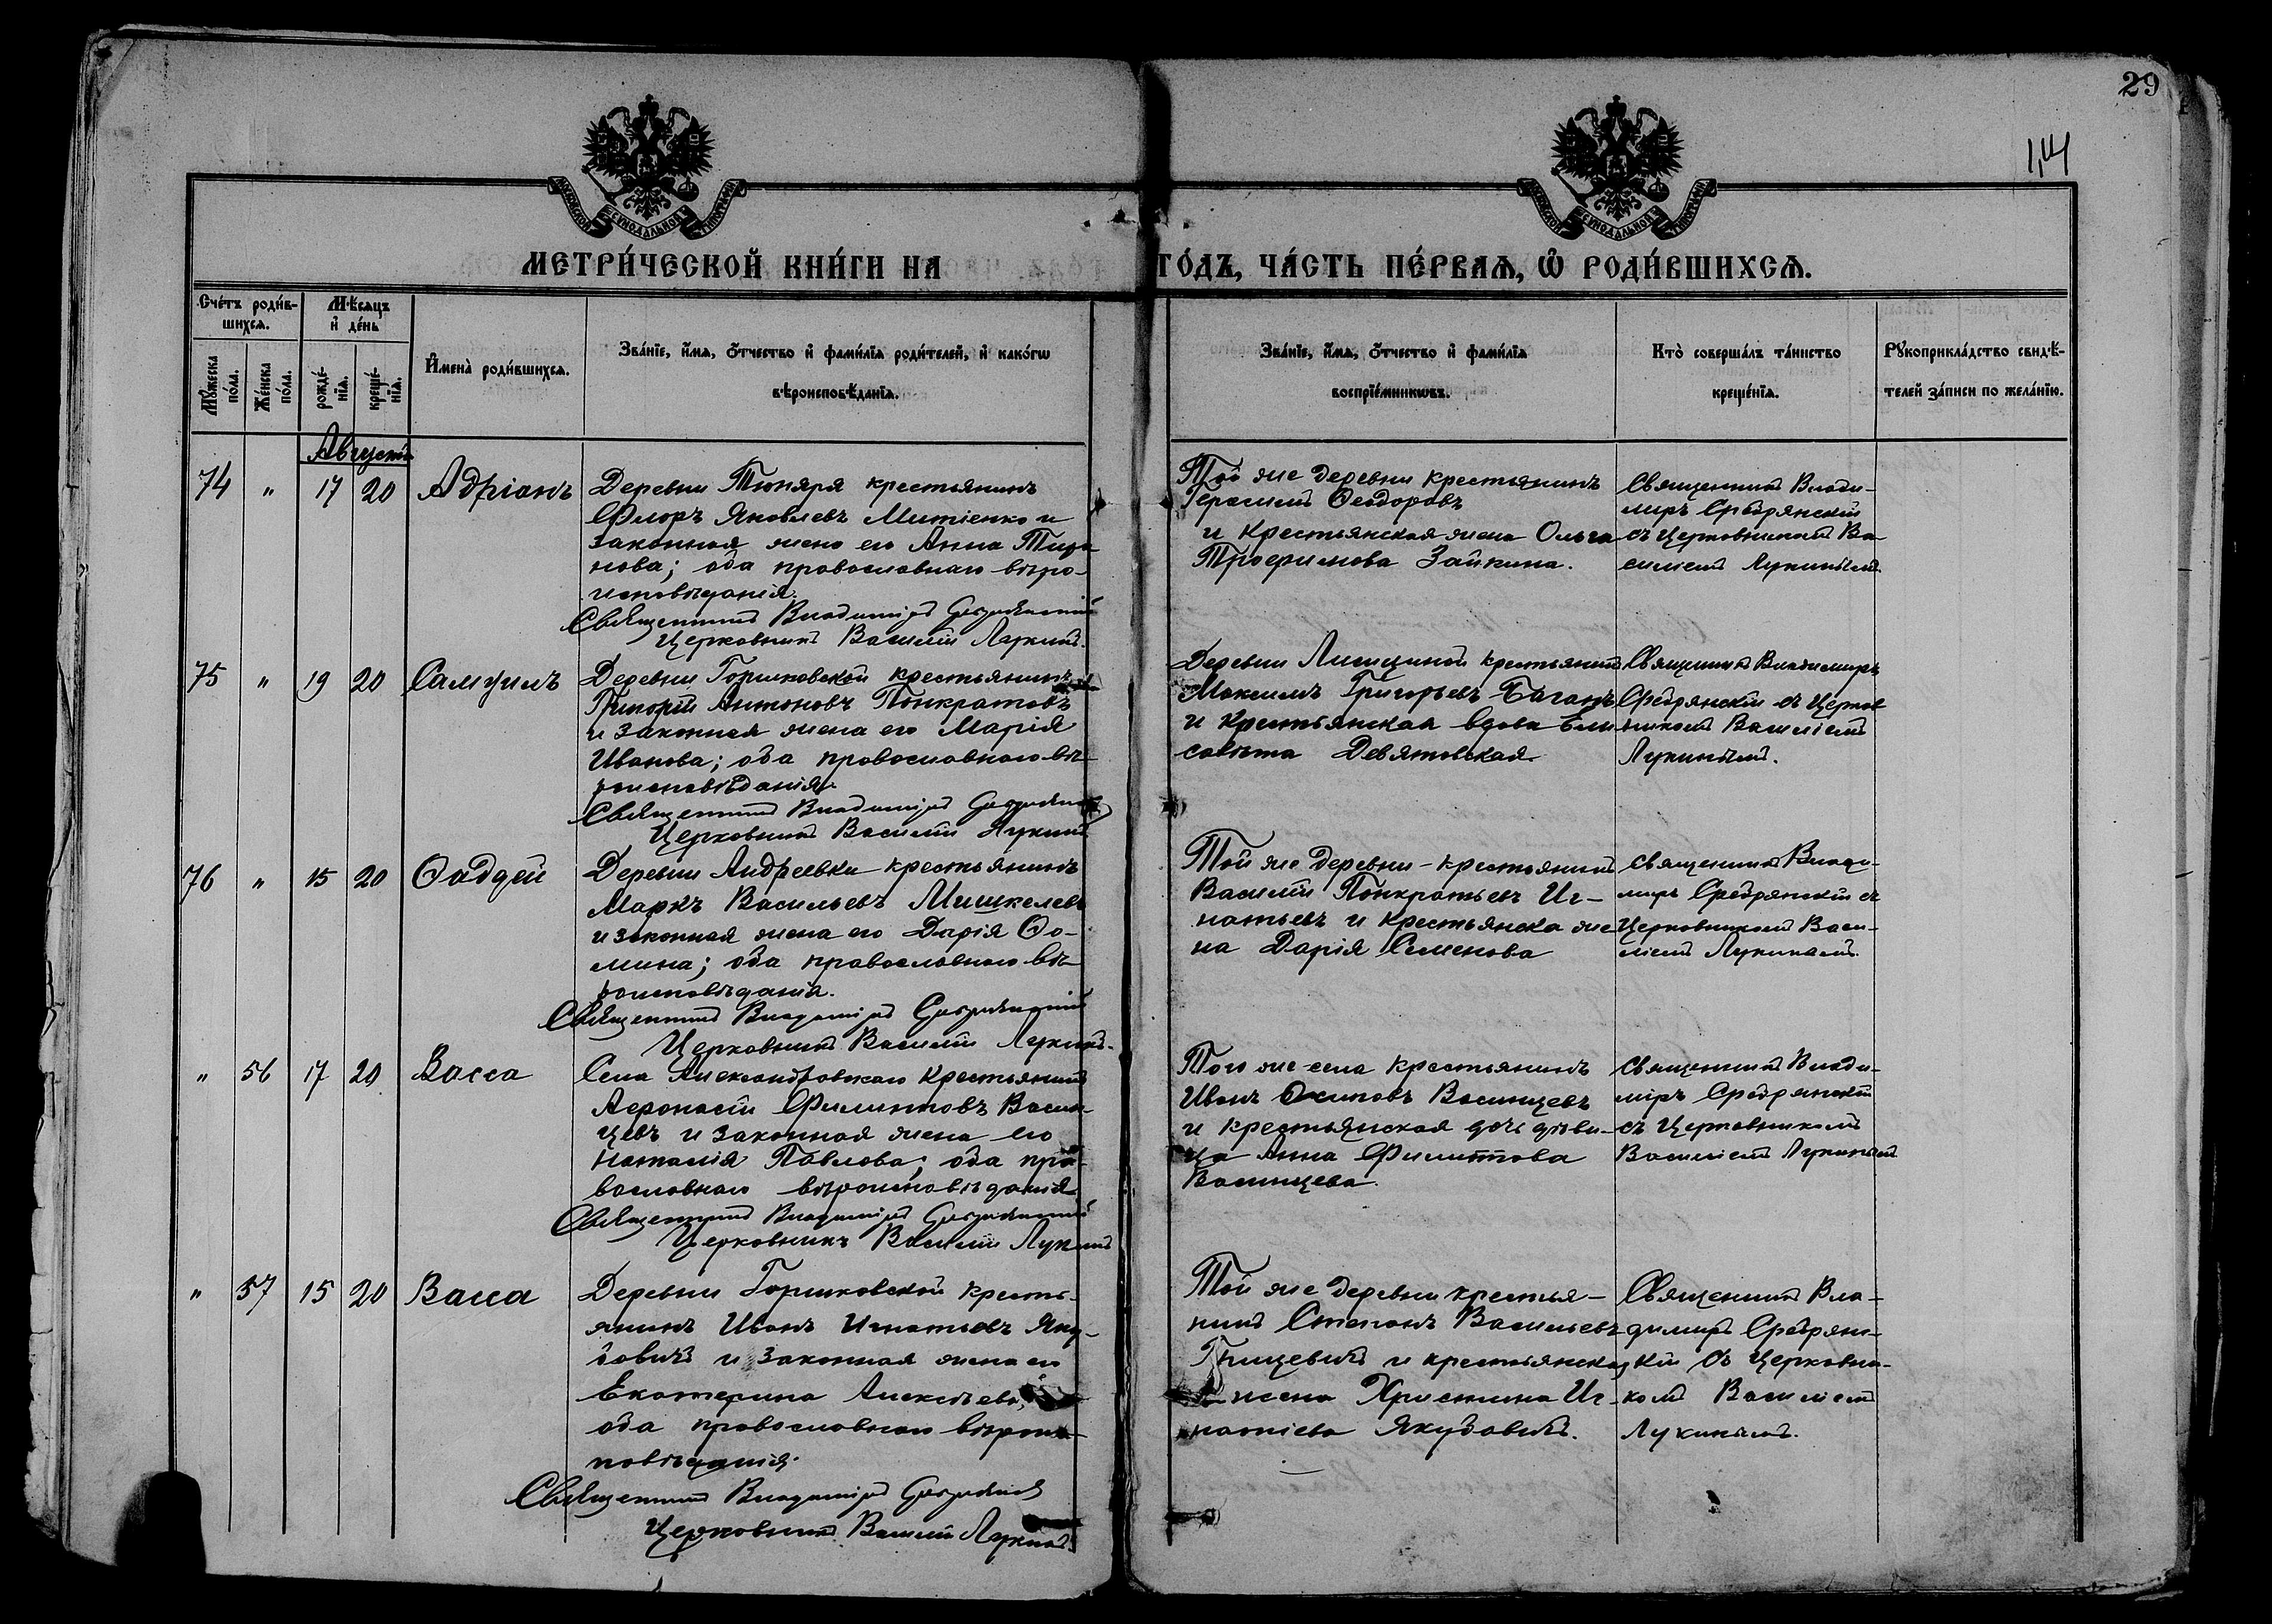 29
МОСКОВСКОЙ СѴНОДАЛЬНОЙ ТИПОГРАФІИ
МОСКОВСКОЙ СѴНОДАЛЬНОЙ ТИПОГРАФІИ
МЕТРИ́ЧЕСКОЙ КНИ́ГИ НА
ГО́ДЪ, ЧА́СТЬ ПЕ́РВАѦ, Ѽ РОДИ́ВШИХСѦ.
Сче́тъ роди́в-
шихсѧ.
Мѣ́сѧцъ
и҆ де́нь
Мꙋ́жеска
по́ла.
Же́нска
по́ла.
рожде́-
нїѧ.
креще́-
нїѧ.
И҆мена̀ роди́вшихсѧ.
Зва́нїе, и҆́мѧ, ѻ҆́тчество и҆ фами́лїѧ роди́телей, и҆ како́гѡ
вѣроисповѣ́данїѧ.
Зва́нїе, и҆́мѧ, ѻ҆́тчество и҆ фами́лїѧ
воспрїе́мникѡвъ.
Кто̀ соверша́лъ та́инство
креще́нїѧ.
Рꙋкоприкла́дство свидѣ́-
телей за́писи по жела́нїю.
Августъ
74 " 17 20 Адріанъ
Деревни Тюняря крестьянинъ
Флоръ Яковлевъ Митіенко и
законная жена его Анна
нова; оба православнаго вѣро-
исповѣданія.
Священникъ Владиміръ
Церковникъ Василій Лукинъ.
Той же деревни крестьянинъ
Герасимъ Ѳеодоровъ
и крестьянская жена Ольга
Трофимова Зайкина.
Священникъ Влади-
миръ Сребрянскій
съ церковникомъ Ва-
силіемъ Лукинымъ.
75 " 19 20 Самуилъ
Деревни Горшковской крестьянинъ
Григорій Антоновъ Понкратовъ
и законная жена его Марія
Иванова; оба православнаго вѣ-
роисповѣданія.
Священникъ Владиміръ
Церковникъ Василій Лукинъ
Деревни Лисициной крестьянинъ
Максимъ Григорьевъ Баганъ
и крестьянская вдова Ели
савѣта Девятовская
Священникъ Владимиръ
Сребрянскій съ Церков
никомъ Василіемъ
Лукинымъ.
76 " 15 20 Ѳаддей
Деревни Андреевки крестьянинъ
Маркъ Васильевъ Мишкелевъ
и законная жена его Дарія Ѳо-
мина; оба православнаго вѣ-
роисповѣданія.
Священникъ Владиміръ
Церковникъ Василій Лукинъ.
Той же деревни - крестьянинъ
Василій Понкратьевъ Иг-
натьевъ и крестьянска же
на Дарія Семенова
Священникъ Влади-
миръ Сребрянскій съ
Церковникомъ Васи-
ліемъ Лукинымъ.
" 56 17 20 Васса
Села Александровскаго крестьянинъ
Афонасій Филиптовъ Васин-
цевъ и законная жена его
Наталія Павлова; оба пра-
вославнаго вѣроисповѣданія
Священникъ Владиміръ
Церковникъ Василій Лукинъ
Того же села крестьянинъ
Иванъ Осиповъ Васинцевъ
и крестьянская дочь дѣви-
ца Анна Филиптова
Васинцева.
Священникъ Влади-
міръ Сребрянскій
съ Церковникомъ
Василіемъ Лукинымъ
" 57 15 20 Васса
Деревни Горшковской кресть-
янинъ Иванъ Игнатьевъ Яку-
бовичъ и законная жена его
Екатерина Алексѣева,
оба православнаго вѣроис-
повѣданія.
Священникъ Владиміръ
Церковникъ Василій Лукинъ.
Той же деревни крестья-
нинъ Степанъ Васильевъ
Грицевичъ и крестьянска
жена Христина Иг-
натіева Якубовичъ.
Священникъ Вла-
димиръ Сребрян-
скій съ Церковни-
комъ Василіемъ
Лукинымъ.